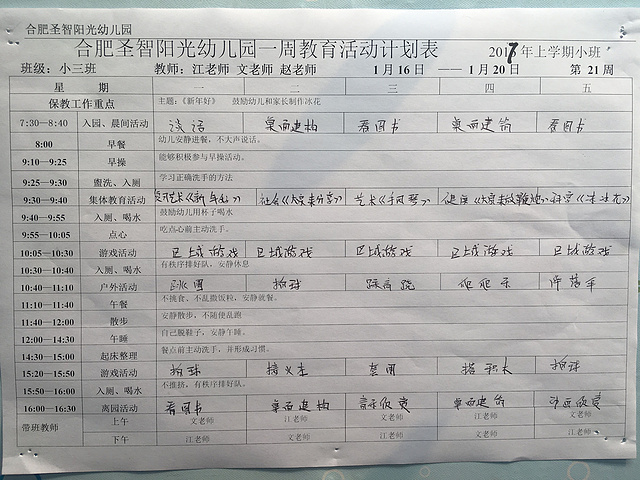 合肥圣智阳光幼儿园
合肥圣智阳光幼儿园一周教育活动计划表 2017年上学期小班
班级：小三班 教师：江老师 文老师 赵老师 1月16日 ——1月20日 第21周
星 期 一 二 三 四 五
保教工作重点 主题：《新年好》 鼓励幼儿和家长制作冰花
7:30—8:40 入园、晨间活动 谈话 桌面建构 看图书 桌面建筑 看图书
8:00 早餐 幼儿安静进餐，不大声说话。
9:10—9:25 早操 能够积极参与早操活动。
9:25—9:30 盥洗、入厕 学习正确洗手的方法
9:30—9:40 集体教育活动 社会《大家来分享》 艺术《手风琴》
9:40—9:55 入厕、喝水 鼓励幼儿用杯子喝水
9:55—10:05 点心 吃点心前主动洗手。
10:05—10:30 游戏活动 区域游戏 区域游戏 区域游戏 区域游戏 区域游戏
10:30—10:40 入厕、喝水 有秩序排好队，安静休息
10:40—11:10 户外活动 跳圈 拍球
11:10—11:40 午餐 不挑食、不乱撒饭粒，安静就餐。
11:40—12:00 散步 安静散步，不随便乱跑
12:00—14:30 午睡 自己脱鞋子，安静午睡。
14:30—15:00 起床整理 餐点前主动洗手，并形成习惯。
15:20—15:50 游戏活动 拍球 套圈 搭积木 拍球
15:50—16:00 入厕、喝水 不推挤，有秩序排好队。
16:00—16:30 离园活动 看图书 桌面建构 音乐欣赏 桌面建筑 动画欣赏
带班教师 上午 文老师 江老师 文老师 江老师 文老师
下午 江老师 文老师 江老师 文老师 江老师